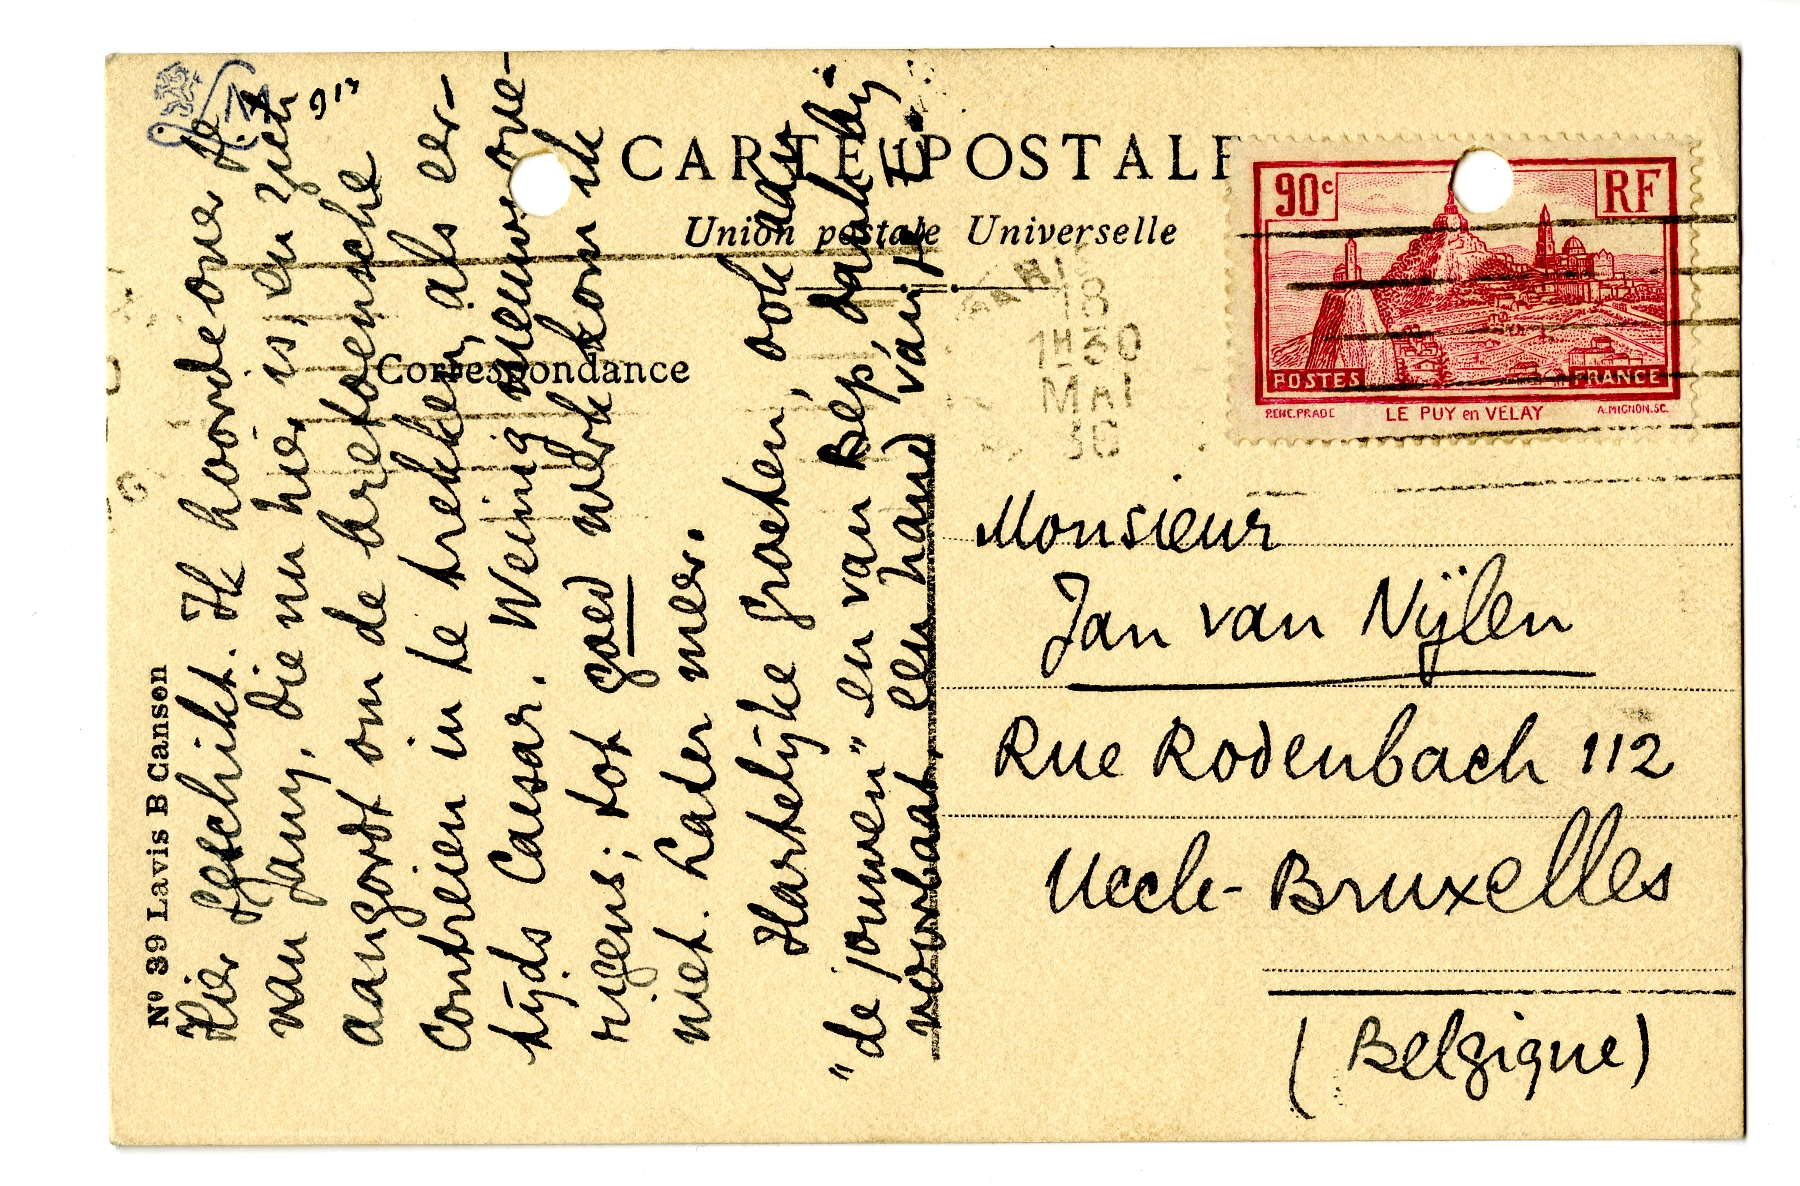 CARTE POSTALE
Union postale Universelle
Correspondance
Nº 39 Lavis B Canson
Hier geschikt. Ik hoorde over je
van Jany, die nu hier is, en zich
aangordt om de bretoensche
contreien in te trekken, als eer-
tijds Caesar. Weinig nieuws ove-
rigens; tot goed werk kom ik
niet. Later meer.
Hartelijke groeten, ook aan
"de jouwen" en van Bep, dank bij
voorbaat, een hand van
18
1H30
MAI
36
90c
RF
POSTES
FRANCE
RENE.PRADE
LE PUY en VELAY
A.MIGNON.SC.
Monsieur
Jan van Nijlen
Rue Rodenbach 112
Uccle-Bruxelles
(Belgique)